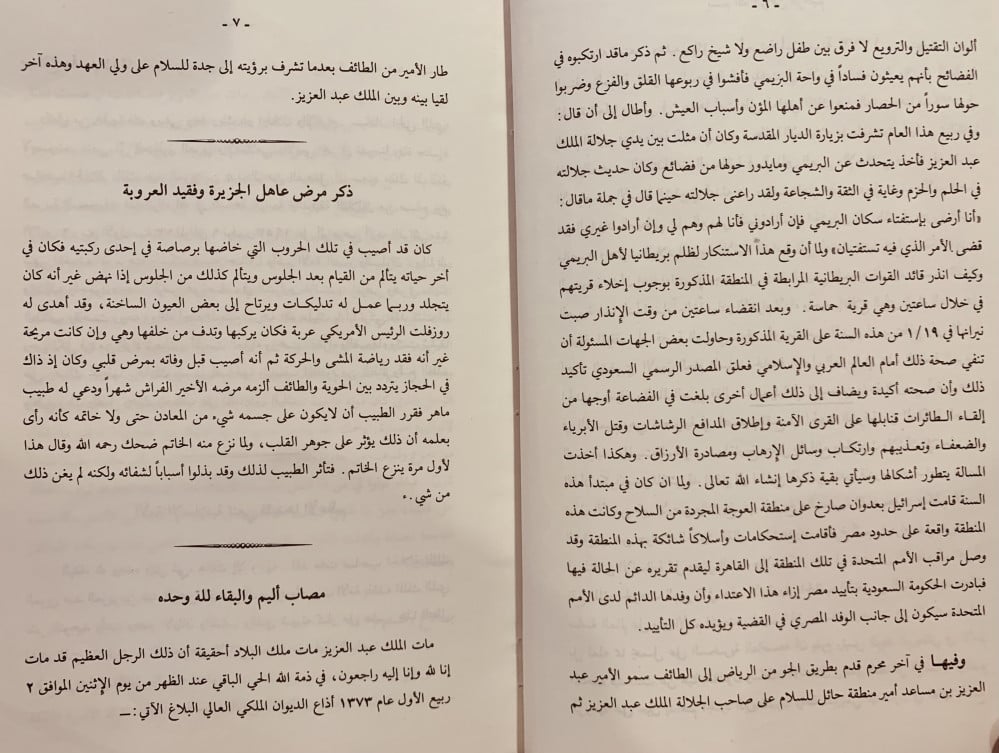 - ٦ -
ألوان التقتيل والترويع لا فرق بين طفل راضع ولا شيخ راكع . ثم ذكر ماقد ارتكبوه في
الفضائح بأنهم يعيثون فساداً في واحة البريمي فأفشوا في ربوعها القلق والفزع وضربوا
حولها سوراً من الحصار فمنعوا عن أهلها المؤن وأسباب العيش . وأطال إلى أن قال :
وفي ربيع هذا العام تشرفت بزيارة الديار المقدسة وكان أن مثلت بين يدي جلالة الملك
عبد العزيز فأخذ يتحدث عن البريمي ومايدور حولها من فضائع وكان حديث جلالته
في الحلم والحزم وغاية في الثقة والشجاعة ولقد راعنى جلالته حينما قال في جملة ماقال :
«أنا أرضى بإستفتاء سكان البريمي فإن أرادوني فأنا لهم وهم لي وإن أرادوا غيري فقد
قضى الأمر الذي فيه تستفتيان» ولما أن وقع هذا الاستنكار لظلم بريطانيا لأهل البريمي
وكيف انذر قائد القوات البريطانية المرابطة في المنطقة المذكورة بوجوب إخلاء قريتهم
في خلال ساعتين وهي قرية حماسة . وبعد انقضاء ساعتين من وقت الإنذار صبت
نيرانها في ١/١٩ من هذه السنة على القرية المذكورة وحاولت بعض الجهات المسئولة أن
تنفي صحة ذلك أمام العالم العربي والإسلامي فعلق المصدر الرسمي السعودي تأكيد
ذلك وأن صحته أكيدة ويضاف إلى ذلك أعمال أخرى بلغت في الفضاعة أوجها من
إلقاء الطائرات قنابلها على القرى الآمنة وإطلاق المدافع الرشاشات وقتل الأبرياء
والضعفاء وتعذيبهم وارتكاب وسائل الإرهاب ومصادرة الأرزاق . وهكذا أخذت
المسالة يتطور أشكالها وسيأتي بقية ذكرها إنشاء الله تعالى . ولما ان كان في مبتدأ هذه
السنة قامت إسرائيل بعدوان صارخ على منطقة العوجة المجردة من السلاح وكانت هذه
المنطقة واقعة على حدود مصر فأقامت إستحكامات وأسلاكاً شائكة بهذه المنطقة وقد
وصل مراقب الأمم المتحدة في تلك المنطقة إلى القاهرة ليقدم تقريره عن الحالة فيها
فبادرت الحكومة السعودية بتأييد مصر إزاء هذا الاعتداء وأن وفدها الدائم لدى الأمم
المتحدة سيكون إلى جانب الوفد المصري في القضية ويؤيده كل التأييد .
وفيها في آخر محرم قدم بطريق الجو من الرياض إلى الطائف سمو الأمير عبد
العزيز بن مساعد أمير منطقة حائل للسلام على صاحب الجلالة الملك عبد العزيز ثم
- ٧ -
طار الأمير من الطائف بعدما تشرف برؤيته إلى جدة للسلام على ولي العهد وهذه آخر
لقيا بينه وبين الملك عبد العزيز .
ذكر مرض عاهل الجزيرة وفقيد العروبة
كان قد أصيب في تلك الحروب التي خاضها برصاصة في إحدى ركبتيه فكان في
أخر حياته يتألم من القيام بعد الجلوس ويتألم كذلك من الجلوس إذا نهض غير أنه كان
يتجلد وربما عمل له تدليكات ويرتاح إلى بعض العيون الساخنة ، وقد أهدى له
روزفلت الرئيس الأمريكي عربة فكان يركبها وتدف من خلفها وهي وإن كانت مريحة
غير أنه فقد رياضة المشى والحركة ثم أنه أصيب قبل وفاته بمرض قلبي وكان إذ ذاك
في الحجاز يتردد بين الحوية والطائف ألزمه مرضه الأخير الفراش شهراً ودعي له طبيب
ماهر فقرر الطبيب أن لايكون على جسمه شيء من المعادن حتى ولا خاتمه كأنه رأى
بعلمه أن ذلك يؤثر على جوهر القلب ، ولما نزع منه الخاتم ضحك رحمه الله وقال هذا
لأول مرة ينزع الخاتم . فتأثر الطبيب لذلك وقد بذلوا أسباباً لشفائه ولكنه لم يغن ذلك
من شيء
مصاب أليم والبقاء للة وحده
مات الملك عبد العزيز مات ملك البلاد أحقيقة أن ذلك الرجل العظيم قد مات
إنا لله وإنا إليه راجعون ، في ذمة الله الحي الباقي عند الظهر من يوم الإثنين الموافق ٢
ربيع الأول عام ١٣٧٣ أذاع الديوان الملكي العالي البلاغ الآتي :—